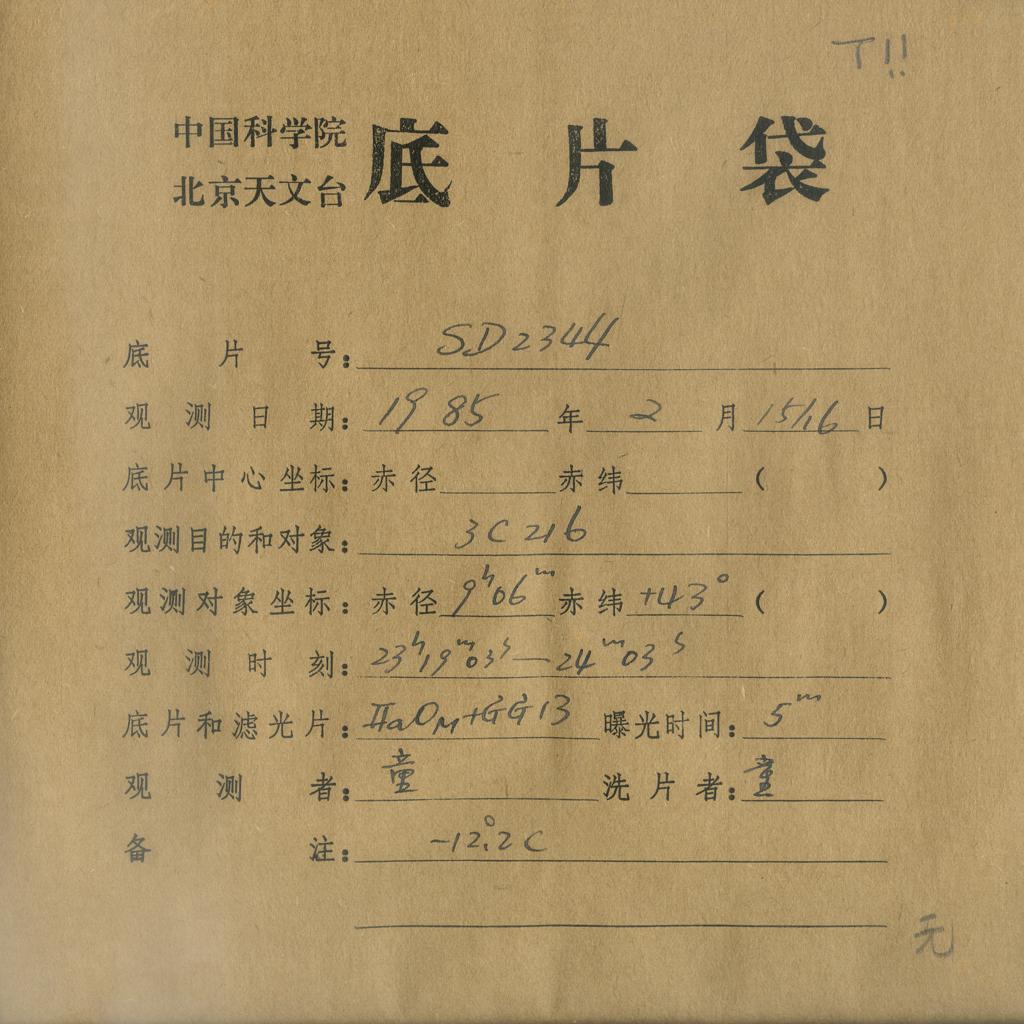 T!!
中国科学院
北京天文台 底片袋
底片号: SD2344
观测日期: 1985年2月15/16日
底片中心坐标: 赤径 赤纬 ( )
观测目的和对象: 3C 216
观测对象坐标: 赤径 9h06m 赤纬 +43° ( )
观测时刻: 23h19m03s—24m03s
底片和滤光片: IIaOM+GG13 曝光时间: 5m
观测者: 童 洗片者: 童
备注: -12.°2C
元